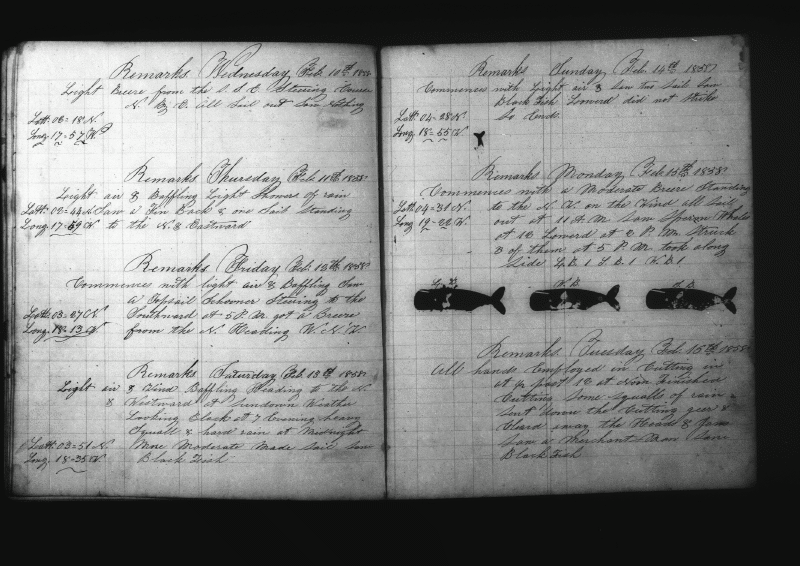 Remarks Wednesday Feb. 10th 1858
Light Breeze from the S. S. E. Stearing Course
N. By E. all Sail out Saw nothing
Latt. 03=18 N.
Long. 17=57 W.
Remarks Thursday Feb. 11th 1858
Light air & Baffling Light Showers of rain
Latt. 02=44 N. Saw a Fin Back & one Sail Standing
Long. 17=59 W. to the N. & Eastward
Remarks Friday Feb. 12th 1858
Commences with light air & Baffling Saw
a Topsail Schooner Stearing to the
Latt. 03=27 N. Southward at 5 P.M. got a Breeze
Long. 18=13 W. from the N. Heading W. N. W.
Remarks Saturday Feb. 13th 1858
Light air & Wind Baffling Heading to the N.
& Westward at Sundown Weather
Looking Black at 7 Coming heavy
Squall & hard rain at Midnight
Latt. 03=51 N. More Moderate Made Sail Saw
Long. 18=35 W. Black Fish
Remarks Sunday Feb. 14th 1858
Commences with Light air & Saw two Sail Saw
Black Fish Lowerd did not Strike
Latt. 04=28 N. So Ends
Long. 18=55 W.
Remarks Monday Feb. 15th 1858
Commences with a Moderate Breeze Standing
Latt. 04=31 N. to the N. W. on the Wind all Sail
Long. 19=22 W. out at 11 A.M. Saw Sperm Whales
at 12 Lowerd at 2 P.M. Struck
3 of them at 5 P.M. took along
Side L.B. 1 S.B. 1 W.B. 1
Remarks Tuesday Feb. 15th 1858
All hands Employed in Cutting in
at ½ past 12 at Noon Finished
Cutting Some Squalls of rain
Sent down the Cutting geer &
Cleard away the Heads &
Saw a Merchant Saw Some
Black Fish